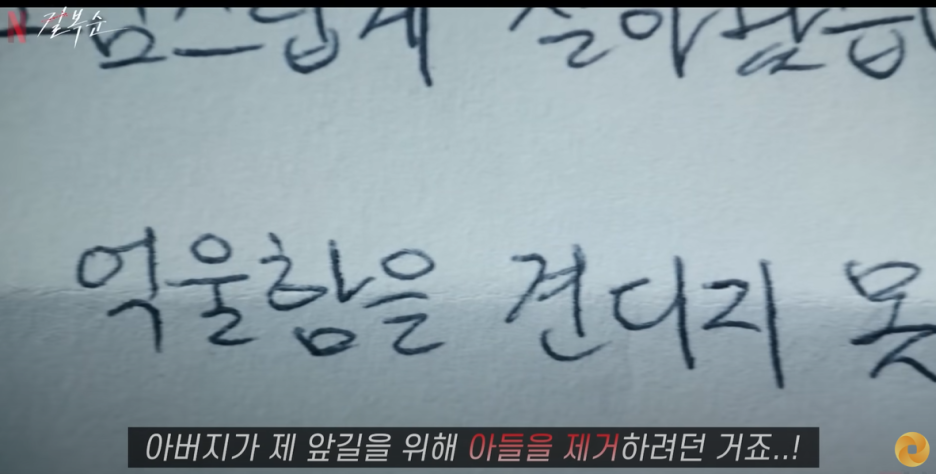 N 길복순
스럽게 살아왔습
억울함을 견디지 못
아버지가 제 앞길을 위해 아들을 제거하려던 거죠..!